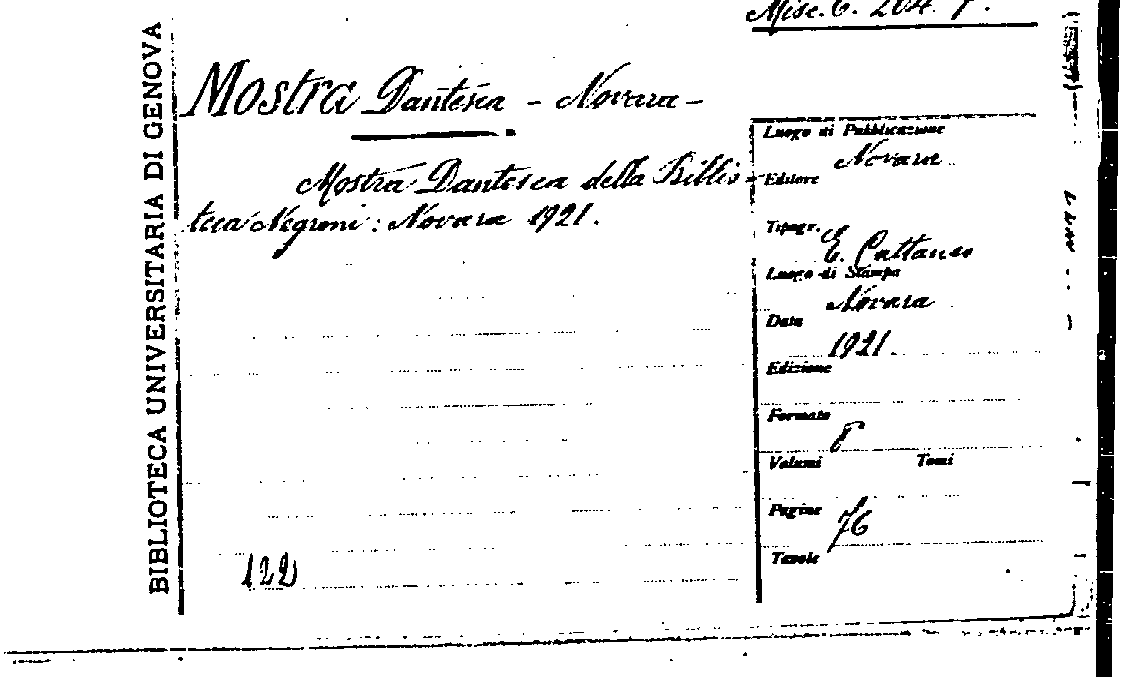 Misc. C. 204. 7.
BIBLIOTECA UNIVERSITARIA DI GENOVA
Mostra Dantesca - Novara -
Mostra Dantesca della Biblio-
teca Negroni: Novara 1921.
122
Luogo di Pubblicazione
Novara
Editore
Tipogr.
E. Cattaneo
Luogo di Stampa
Novara
Data
1921
Edizione
Formato
8
Volumi Tomi
Pagine
76
Tavole